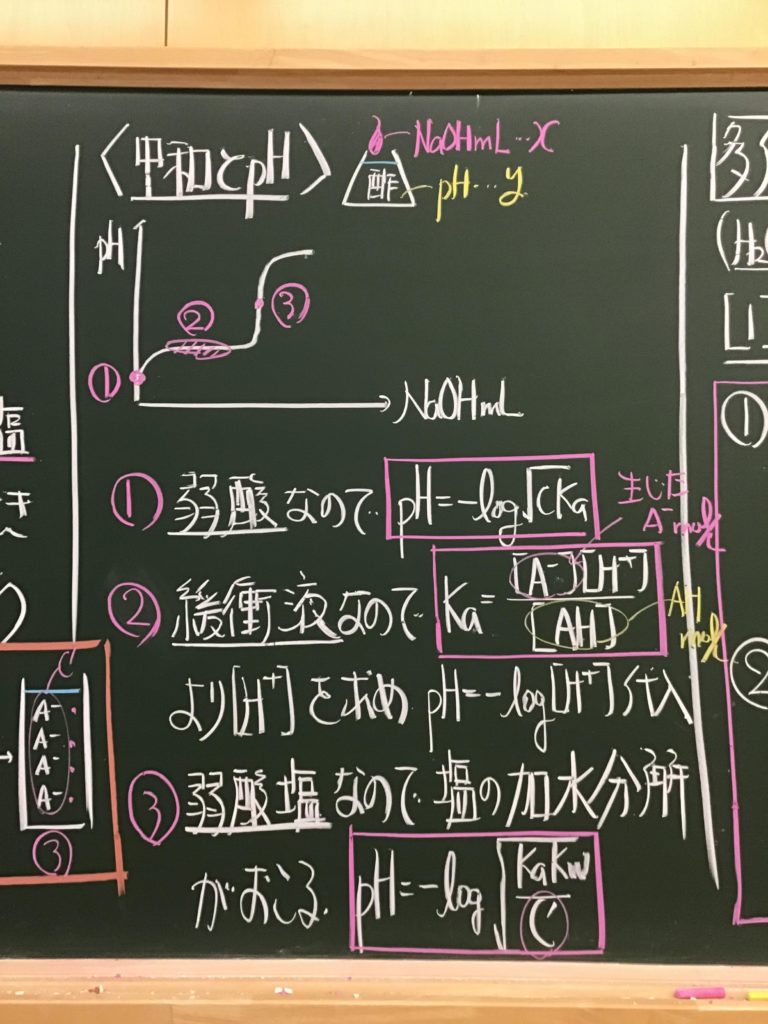 塩
き
A⁻
A⁻
A⁻
A⁻
③
〈中和とpH〉
NaOHmL…x
酢
pH…y
pH
①
②
③
NaOHmL
① 弱酸なので pH=-log√CKa
生じた
A⁻mol/ℓ
② 緩衝液なので Ka=[A⁻][H⁺]/[AH]
AH
mol/ℓ
より[H⁺]を求め pH=-log[H⁺]代入
③ 弱酸塩なので塩の加水分解
がおこる. pH=-log√KaKw/C'
多
(H₂
[1]
①
②